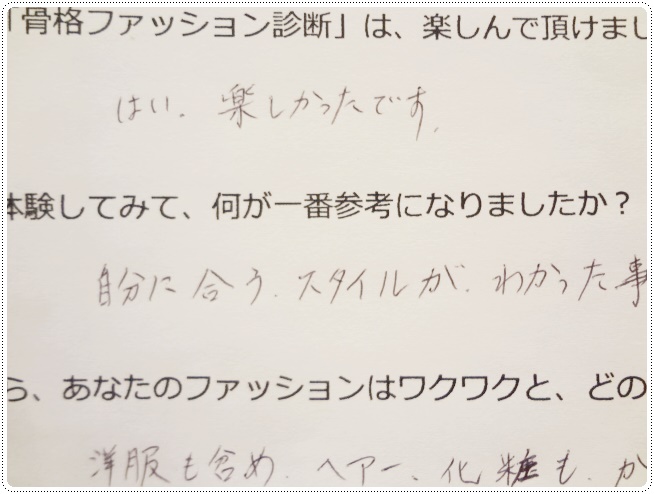 「骨格ファッション診断」は、楽しんで頂けまし
はい。楽しかったです。
体験してみて、何が一番参考になりましたか？
自分に合う、スタイルが、わかった事
ら、あなたのファッションはワクワクと、どの
洋服も含め、ヘアー、化粧も、か